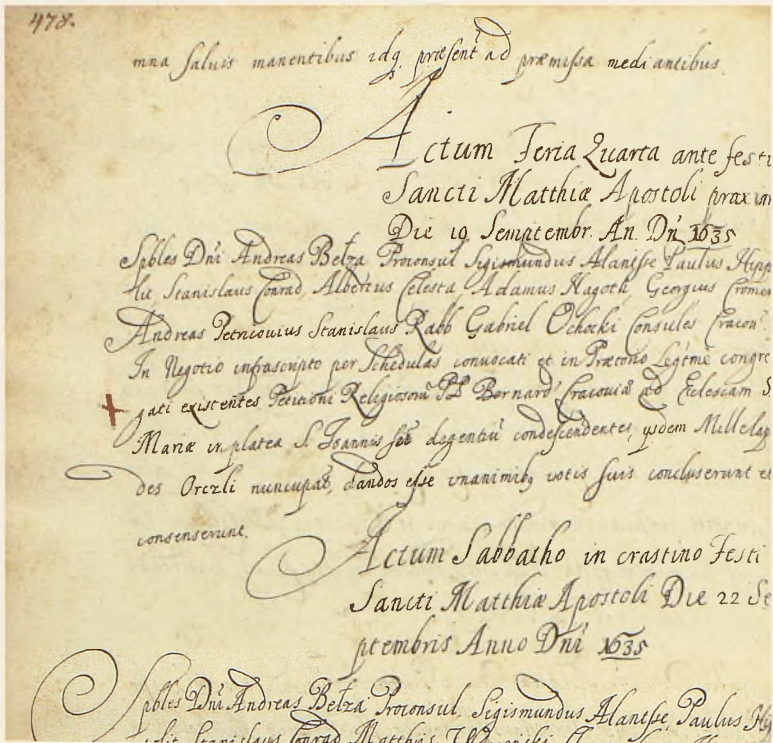 478.
mna salvis manentibus idq præsent ad præmissa mediantibus.
Actum Feria Quarta ante festi
Sancti Matthiæ Apostoli proxim
Die 19 Semptembr. An. Dñi 1635
Spbles Dñi Andreas Belza Proconsul Sigismundus Alantsse Paulus Hipp
lit Stanislaus Conrad, Albertus Celesta Adamus Nagoth, Georgius Cromer
Andreas Petricovius Stanislaus Rabb Gabriel Ochocki Consules Cracon.
In Negotio infrascripto per Schedulas convocati et in Prætorio Legtme congre
gati existentes Petitioni Religiosorũ PP Bernard Cracoviæ ad Ecclesiam S.
Mariæ in platea S. Joannis degentiũ condescendentes, ysdem Mille lap
des Orczli nuncupat, dandos esse unanimibq votis suis concluserunt et
consenserunt.
Actum Sabbatho in crastino Festi
Sancti Matthiæ Apostoli Die 22 Se
ptembris Anno Dñi 1635
Spbles Dñi Andreas Belza Proconsul, Sigismundus Alantsse, Paulus Hip
Stanislaus Conrad Matthias